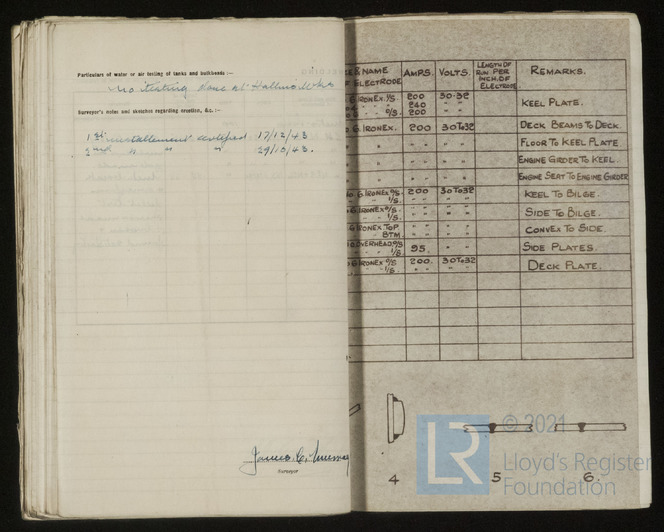 Particulars of water or air testing of tanks and bulkheads :—
No testing done at Halling Works
Surveyor's notes and sketches regarding erection, &c. :—
1st installement certified 17/12/43
2nd " " " 29/10/43.
James C.
Surveyor
& NAME
ELECTRODE
AMPS.
VOLTS.
LENGTH OF
RUN PER
INCH.OF
ELECTRODE.
REMARKS.
G IRONEX. I/S. 200 30-32
" " " 240 " "
G " " O/S. 200 " "
KEEL PLATE.
G. IRONEX. 200 30To32 DECK BEAMS To DECK
" " " " " FLOOR To KEEL PLATE
" " " " " ENGINE GIRDER To KEEL.
" " " " " ENGINE SEAT To ENGINE GIRDER
G. IRONEX O/S. 200 30To32
" " I/S. " " " "
KEEL To BILGE.
G. IRONEX O/S. " " " "
" " I/S. " " " "
SIDE To BILGE.
G IRONEX TOP " " " "
BTM. " " " "
CONVEX To SIDE.
OVERHEAD O/S
" " I/S 95. " "
SIDE PLATES.
G IRONEX O/S 200. 30To32
" " I/S " " " "
DECK PLATE.
4 5 6.
LR © 2021
Lloyd's Register
Foundation